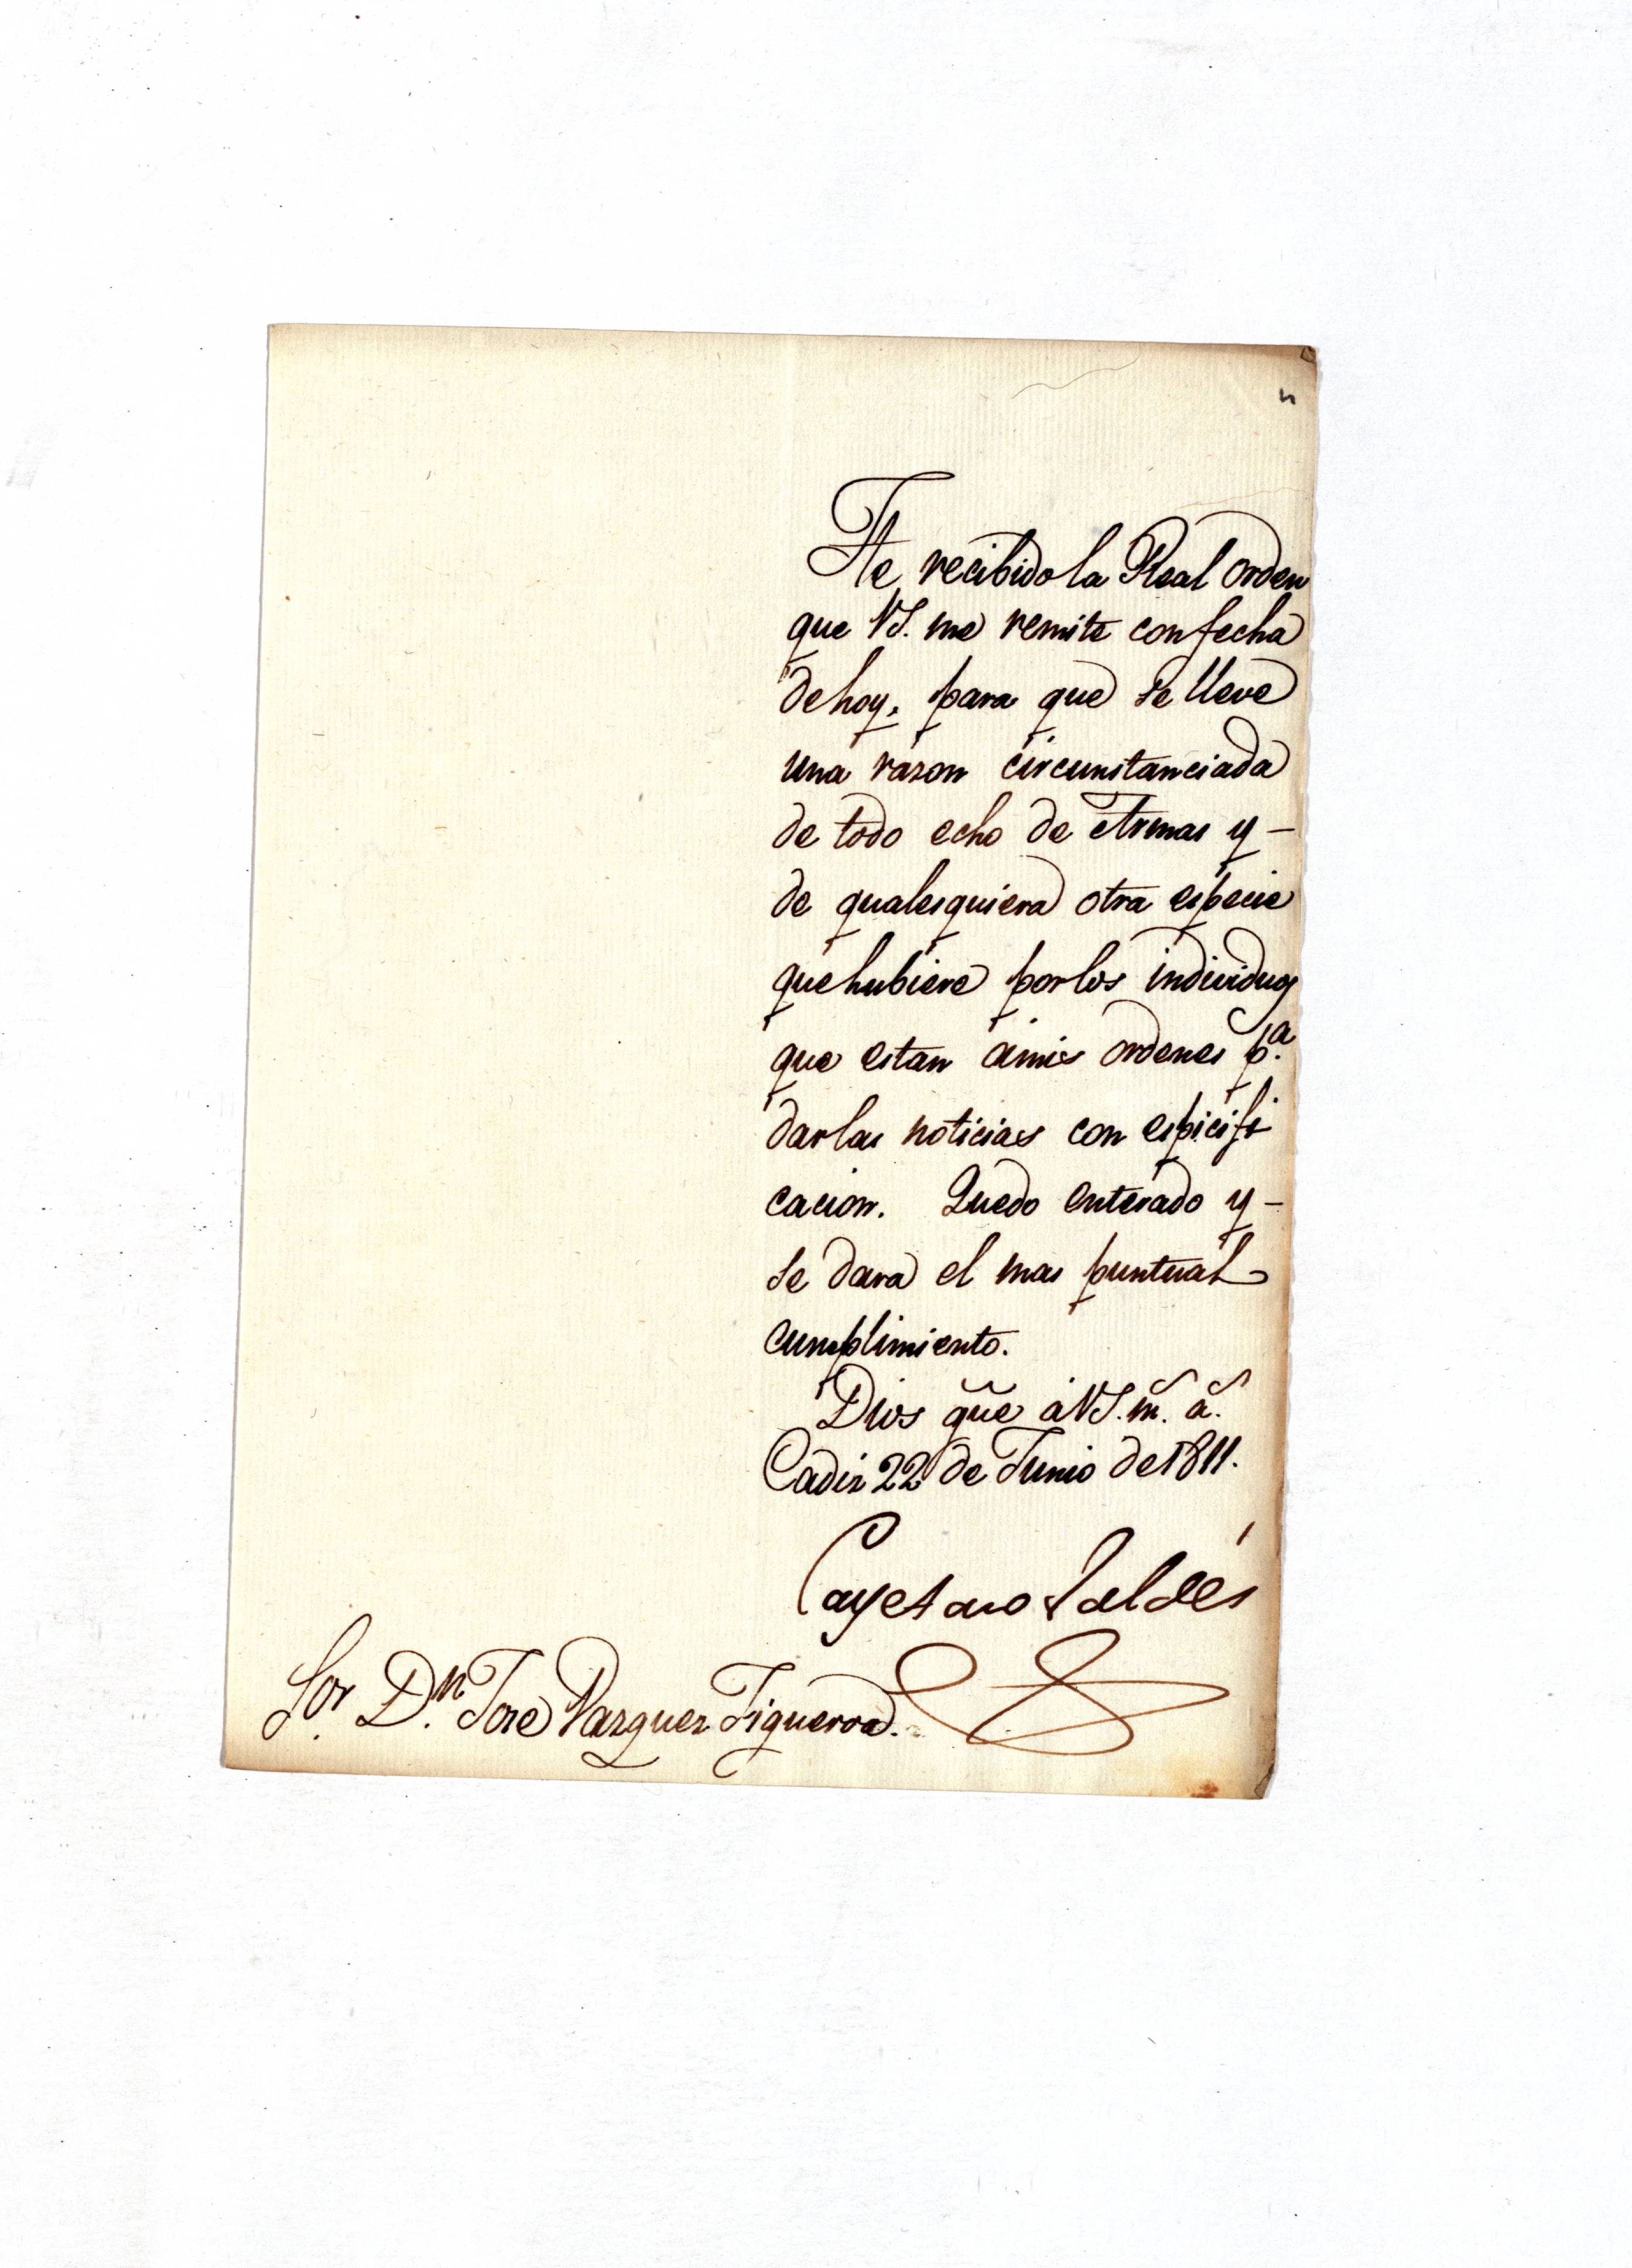 He recibido la Real orden
que VS. me remite con fecha
de hoy, para que se lleve
una razon circunstanciada
de todo echo de Armas y -
de qualesquiera otra especie
que hubiere por los individuos
que estan a mis ordenes p.ª
dar las noticias con espicifi
cacion. Quedo enterado y -
se dara el mas puntual
cumplimiento.
Dios güe á VS. m. a.
Cadiz 22 de Junio de 1811.
Cayetano Valdés
Sor. Dn. Jose Vazquez Figueroa.